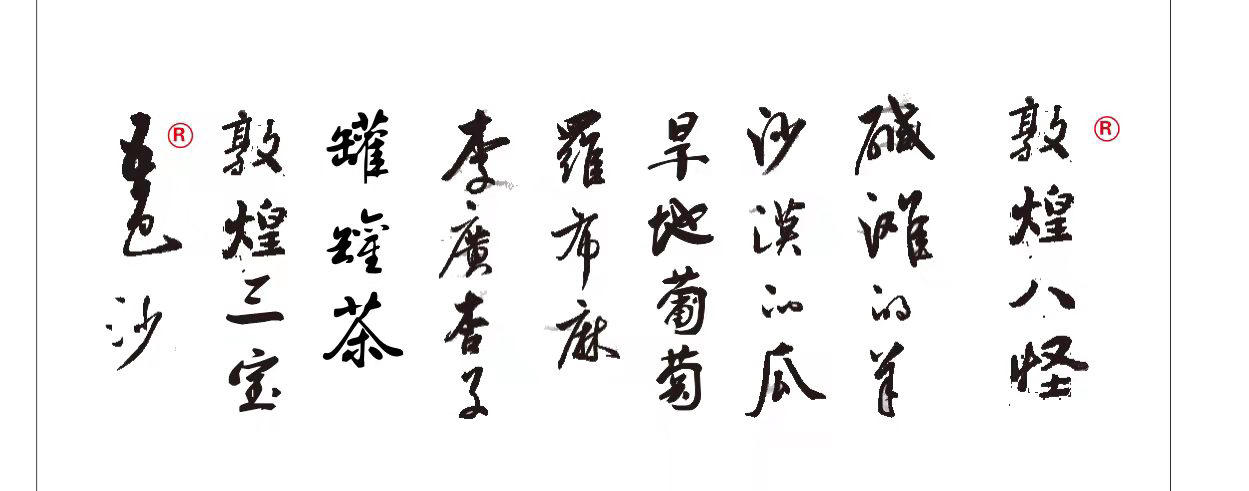 敦煌八怪®
碱滩的羊
沙漠的瓜
旱地葡萄
羅布麻
李廣杏子
罐罐茶
敦煌三宝
五色沙®